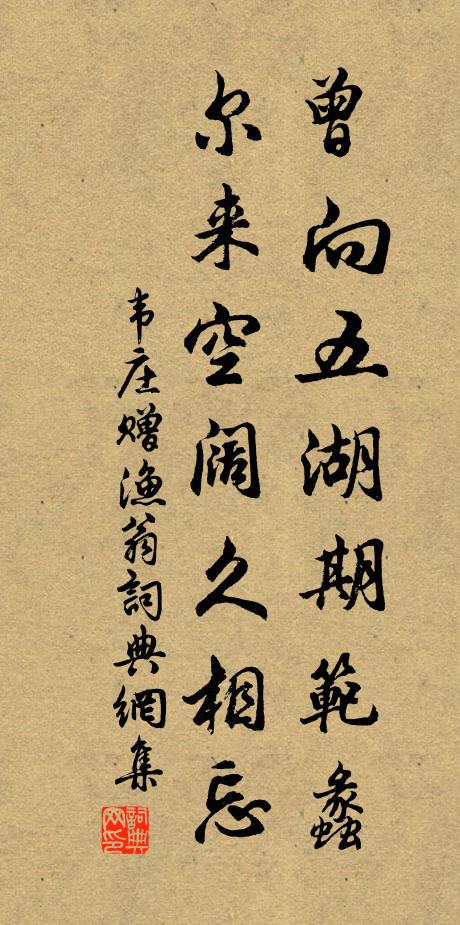 曾向五湖期範蠡
尔来空阔久相忘
韦庄赠渔翁詞典網集
詞典网印